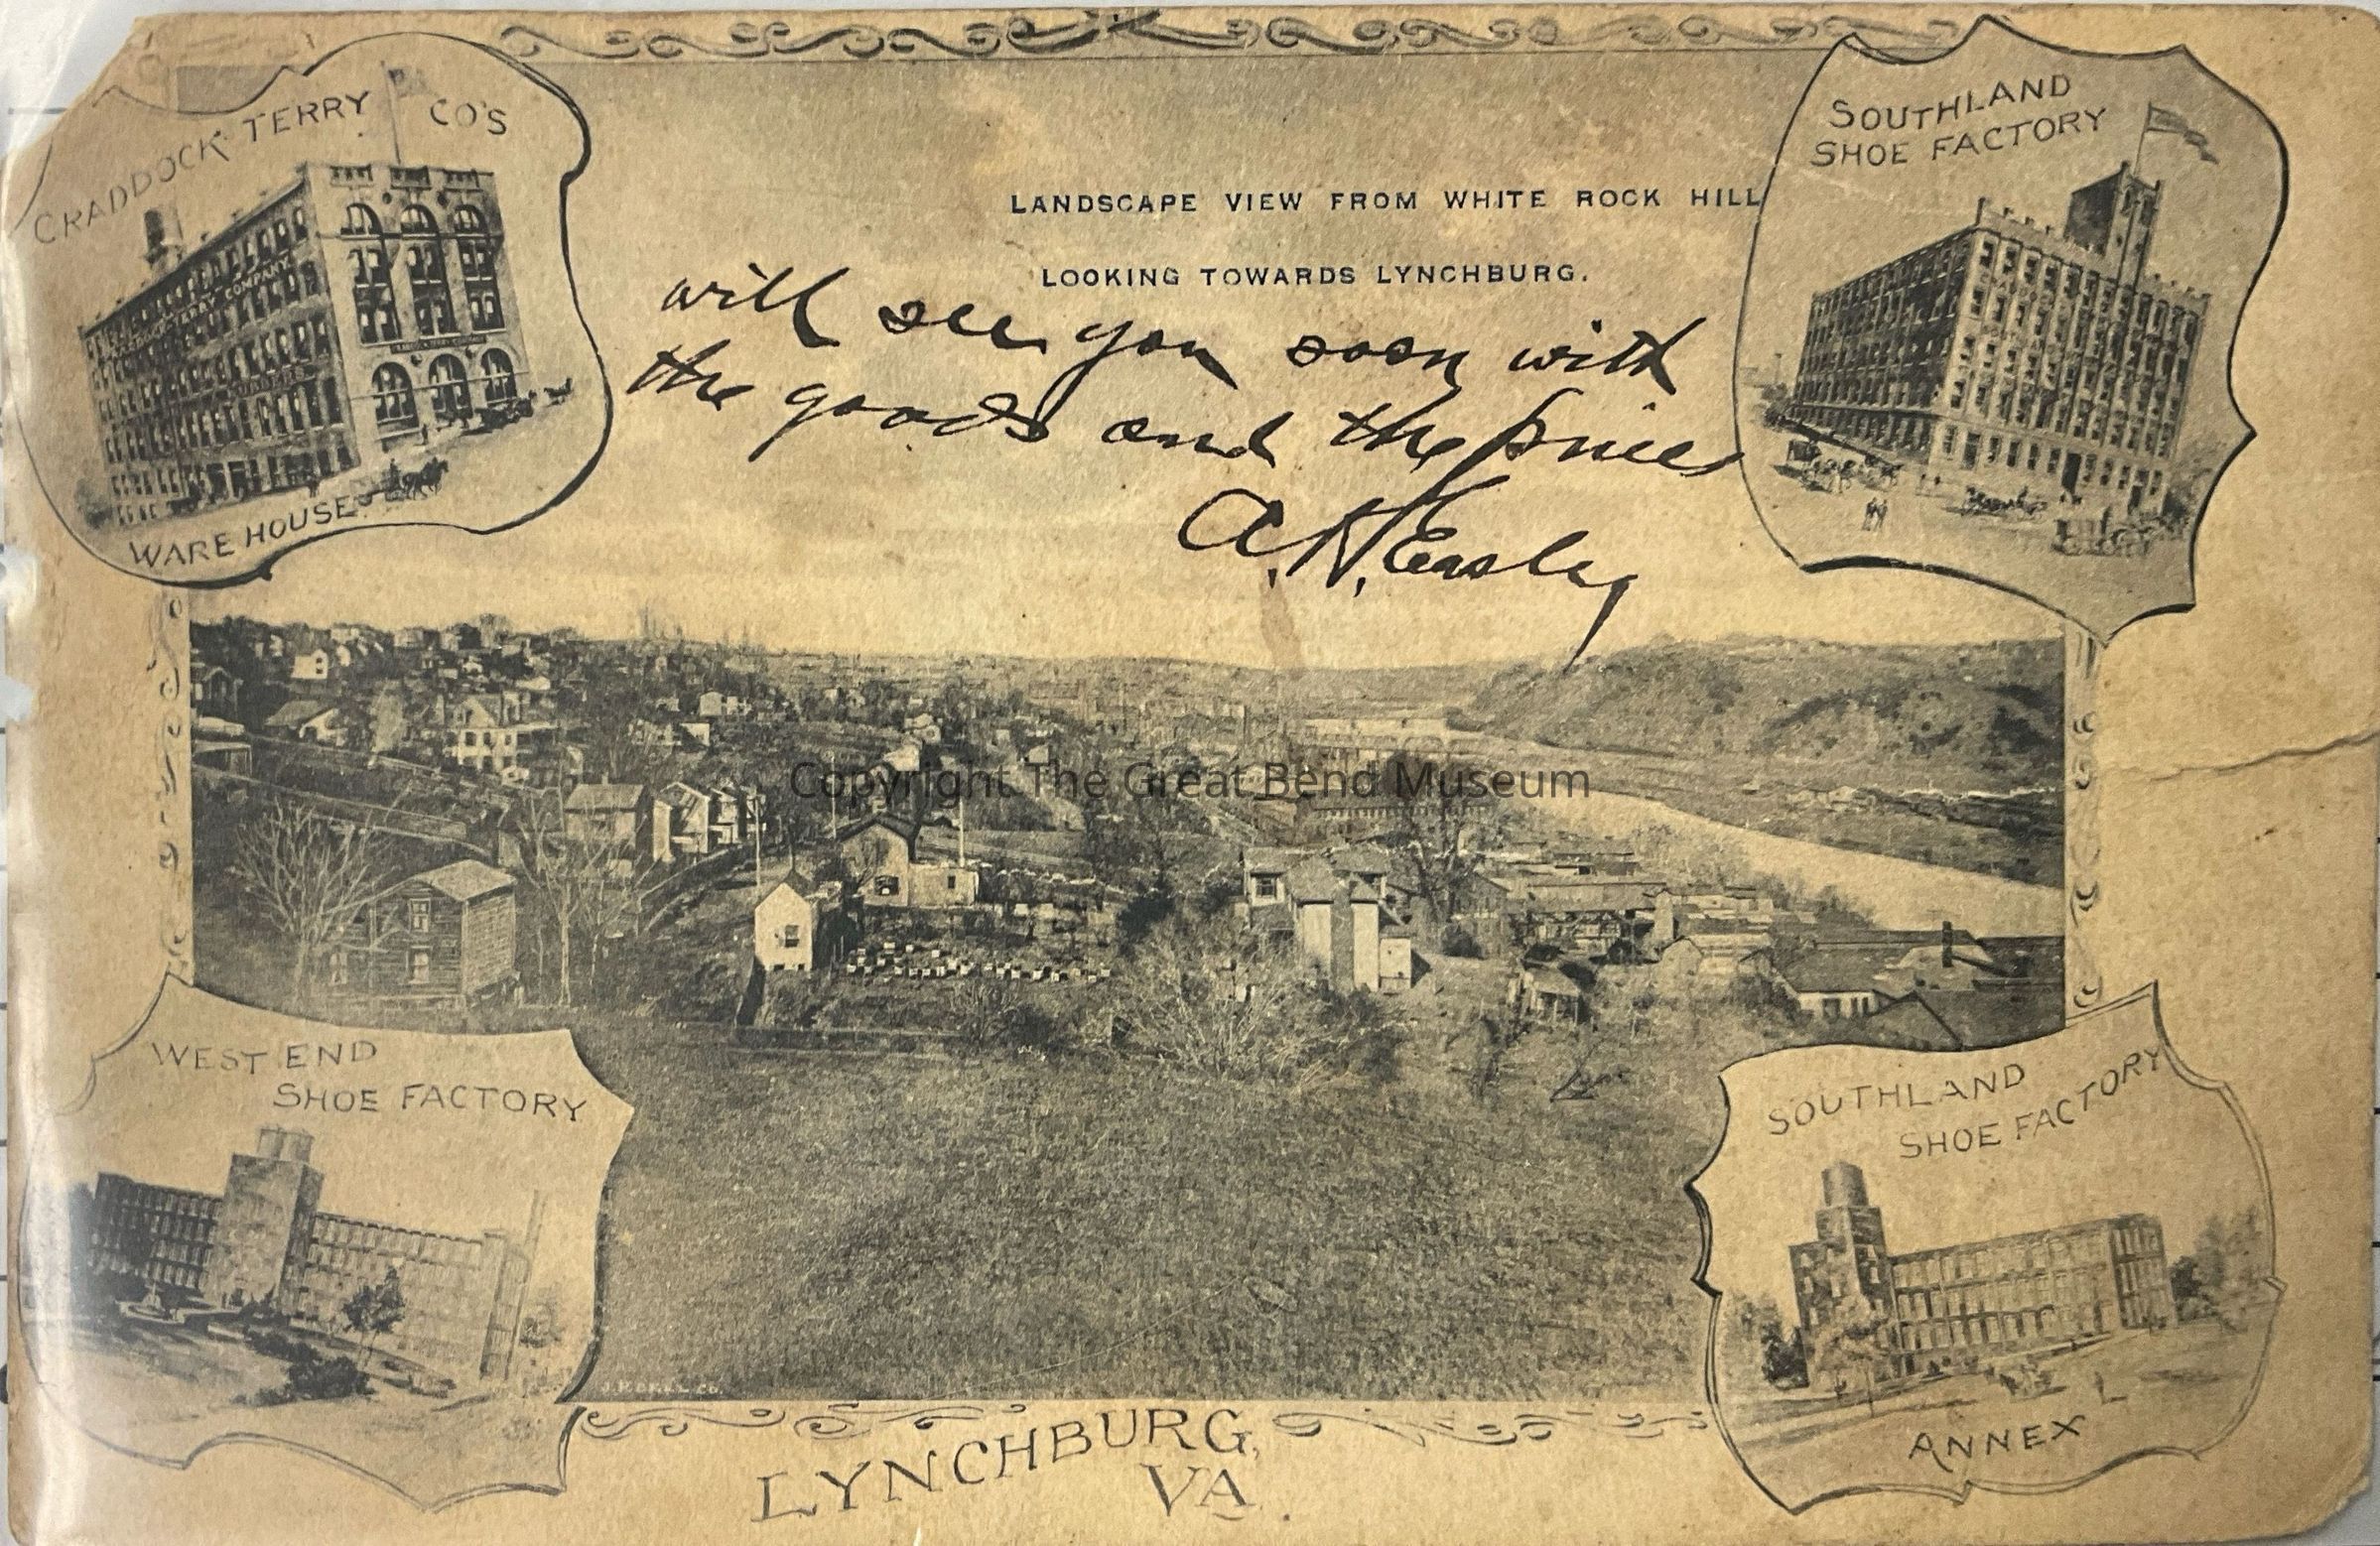 CRADDOCK-TERRY CO'S
WARE HOUSE
CRADDOCK-TERRY COMPANY
SOUTHLAND
SHOE FACTORY
LANDSCAPE VIEW FROM WHITE ROCK HILL
LOOKING TOWARDS LYNCHBURG.
will see you soon with
the goods and the prices
A. H. Easley
Copyright The Great Bend Museum
WEST END
SHOE FACTORY
SOUTHLAND
SHOE FACTORY
ANNEX
LYNCHBURG,
VA.